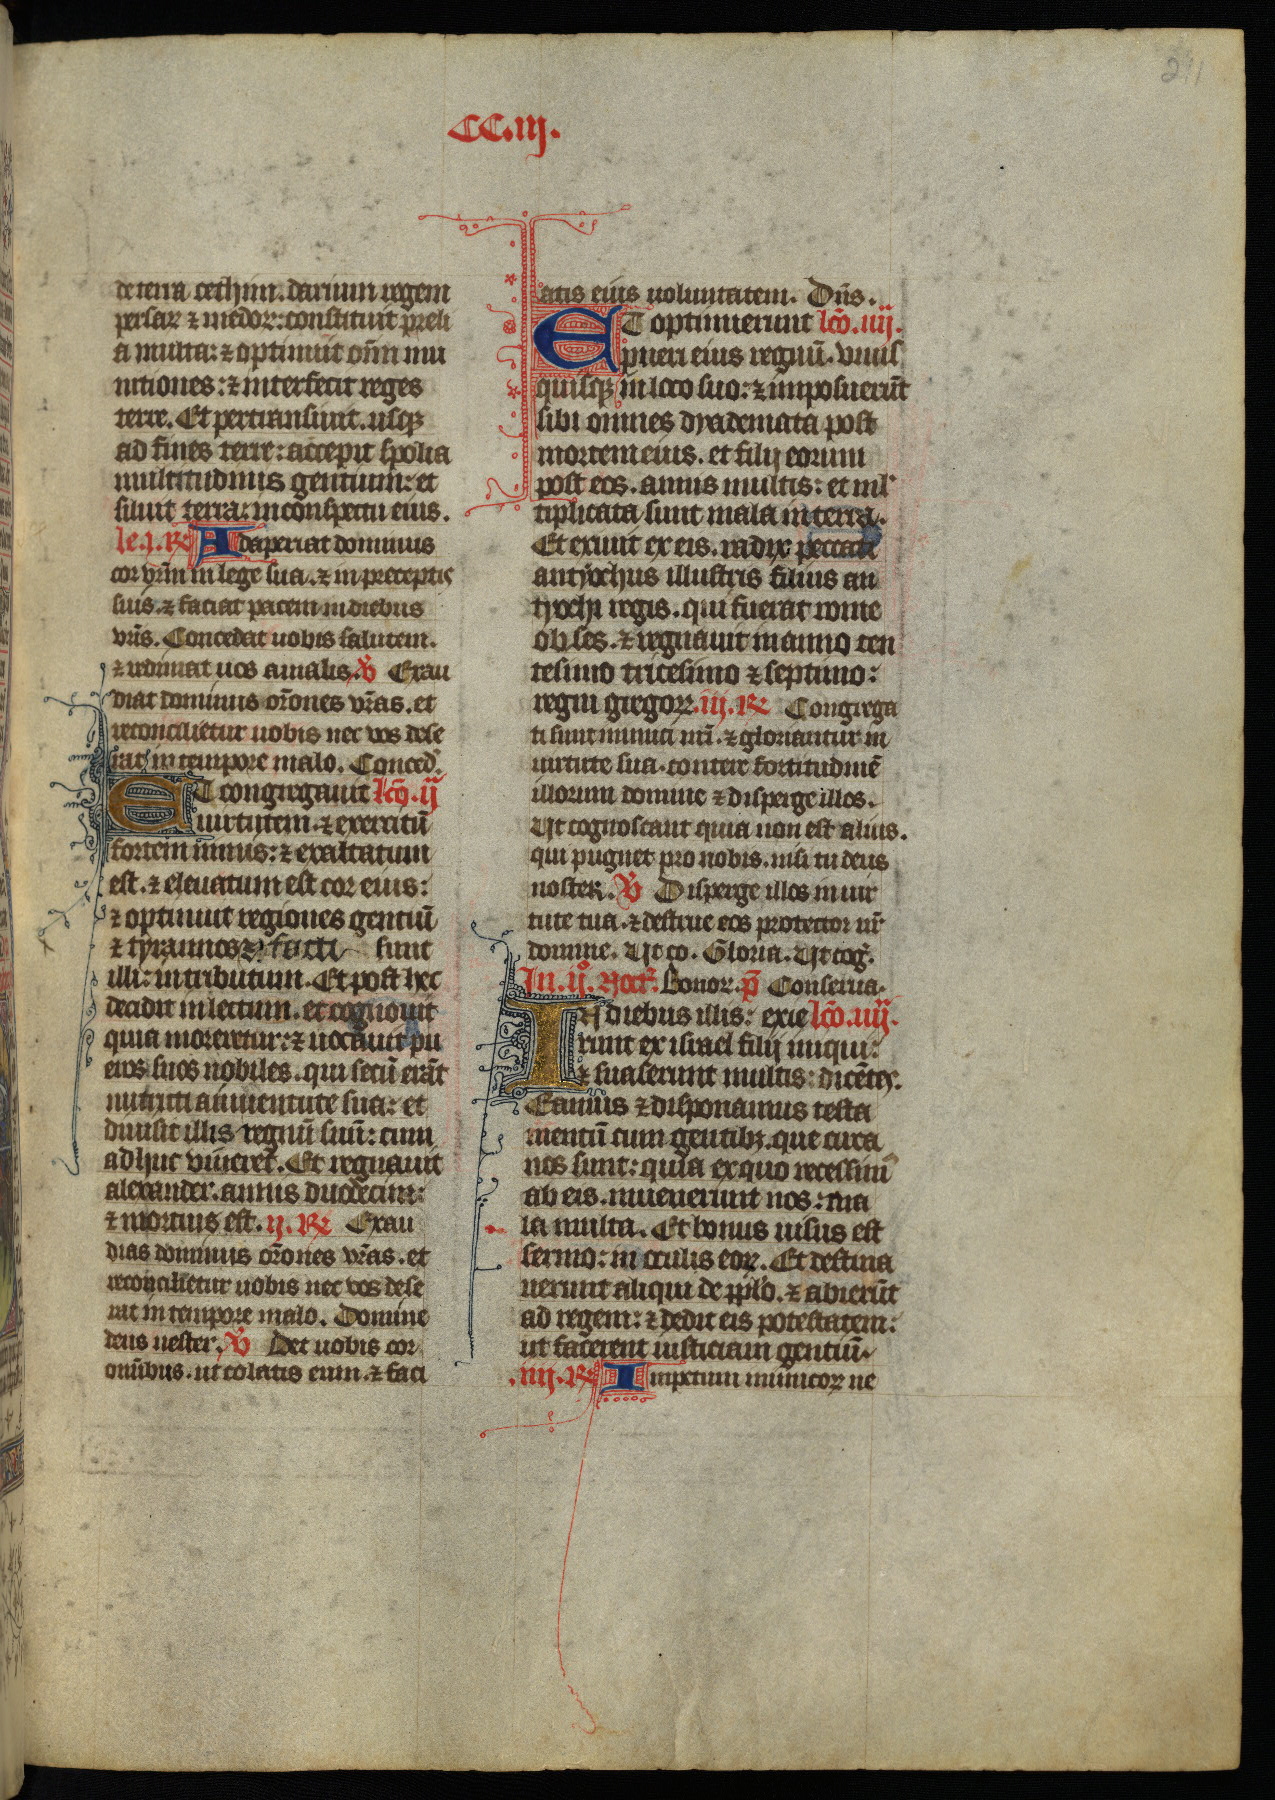 211
CC.iij.
de terra cethim. darium regem
persaꝝ ⁊ medoꝝ: constituit preli
a multa: ⁊ optinuit om̄ium mu
nitiones: ⁊ interfecit reges
terre. Et pertransiuit. usqꝫ
ad fines terre: accepit spolia
multitudinis gentium: et
siluit terra: in conspectu eius.
le.i. ℟ Adaperiat dominus
cor vr̄m in lege sua. ⁊ in preceptis
suis. ⁊ faciat pacem in diebus
vr̄is. Concedat uobis salutem.
⁊ redimat uos a malis. ℣ Exau
diat dominus or̄ones vr̄as. et
reconcilietur uobis nec vos dese
rat in tempore malo. Conced̾.
ET congregauit lc̄o. ij
uirtutem. ⁊ exercitū
fortem nimis: ⁊ exaltatum
est. ⁊ eleuatum est cor eius:
⁊ optinuit regiones gentiū
⁊ tyrannos ⁊ facti sunt
illi: in tributum. Et post hec
decidit in lectum. et cognouit
quia moreretur: ⁊ uocauit pu
eros suos nobiles. qui secū erāt
nutriti a iuuentute sua: et
diuisit illis regnū suū: cum
adhuc viueret. Et regnauit
alexander. annis duodecim:
⁊ mortuus est. ij. ℟ Exau
diat dominus or̄ones vr̄as. et
reconcilietur uobis nec vos dese
rat in tempore malo. Domine
deus vester. ℣ Det uobis cor
omībus. ut colatis eum. ⁊ faci
atis eius uoluntatem. Dn̄s.
ET optinuerunt lc̄o. iij.
pueri eius regnū. vnus
quisqꝫ in loco suo: ⁊ imposuerūt
sibi omnes dyademata post
mortem eius. et filij eorum
post eos. annis multis: et ml̾
tiplicata sunt mala in terra.
Et exiuit ex eis. radix peccati
antyochus illustris filius an
tyochi regis. qui fuerat rome
obses. ⁊ regnauit in anno cen
tesimo tricesimo ⁊ septimo:
regni gregoꝝ. iij. ℟ Congrega
ti sunt inimici nr̄i. ⁊ gloriantur in
uirtute sua. contere fortitudinē
illorum domine ⁊ disperge illos.
Ut cognoscant quia non est alius.
qui pugnet pro nobis. nisi tu deus
noster. ℣ Disperge illos in uir
tute tua. ⁊ destrue eos protector nr̄
domine. Ut co. Gloria. Ut cog̾.
In. ij°. Noct̾. Bonoꝝ. p̄ Conserua.
IN diebus illis: exie lc̄o. iiij.
runt ex israel filij iniqui:
⁊ suaserunt multis: dicētes.
Eamus ⁊ disponamus testa
mentū cum gentibꝫ. que circa
nos sunt: quia ex quo recessim̾
ab eis. inuenerunt nos: ma
la multa. Et bonus uisus est
sermo: in oculis eoꝝ. Et destina
uerunt aliqui de pp̄lo. ⁊ abierūt
ad regem: ⁊ dedit eis potestatem:
ut facerent iusticiam gentiū.
.iiij. ℟ Impetum inimicoꝝ ne